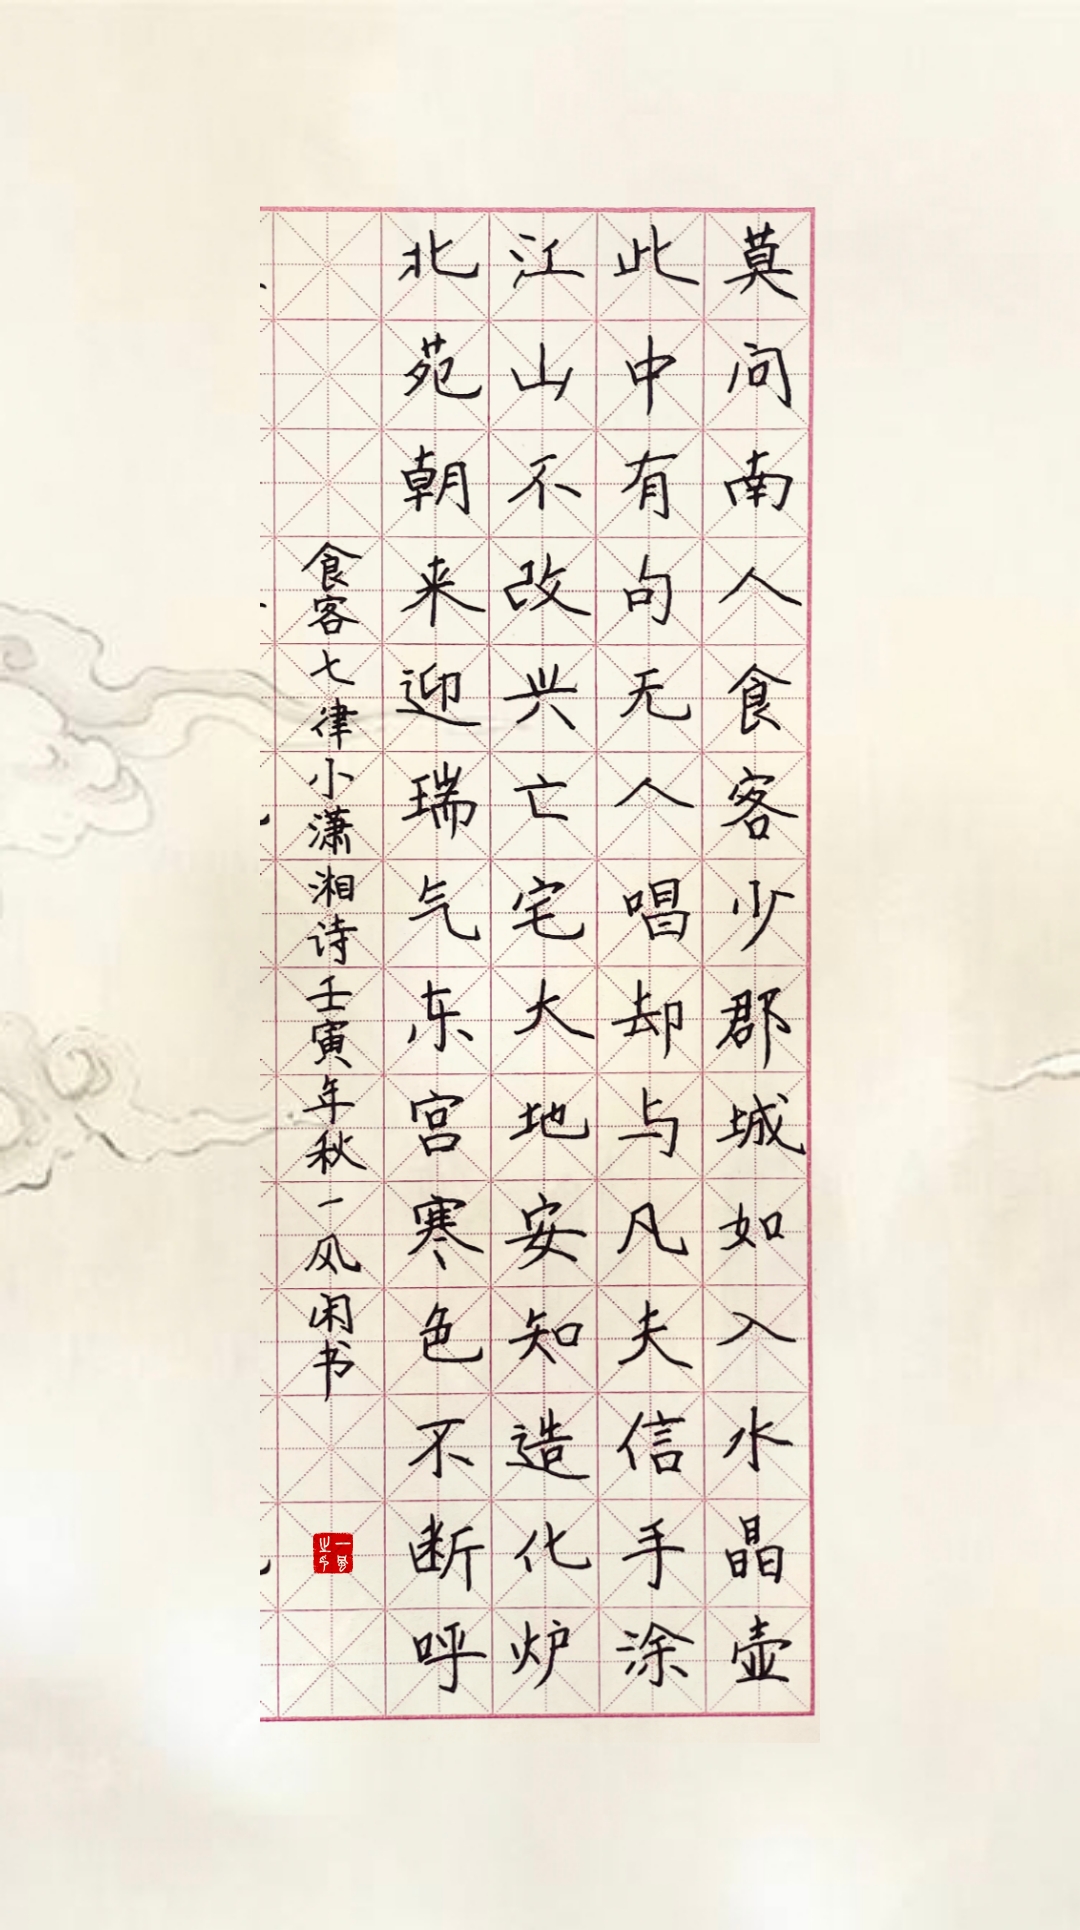 莫问南人食客少郡城如入水晶壶
此中有句无人唱却与凡夫信手涂
江山不改兴亡宅大地安知造化炉
北苑朝来迎瑞气东宫寒色不断呼
食客七律小潇湘诗壬寅年秋一风闲书